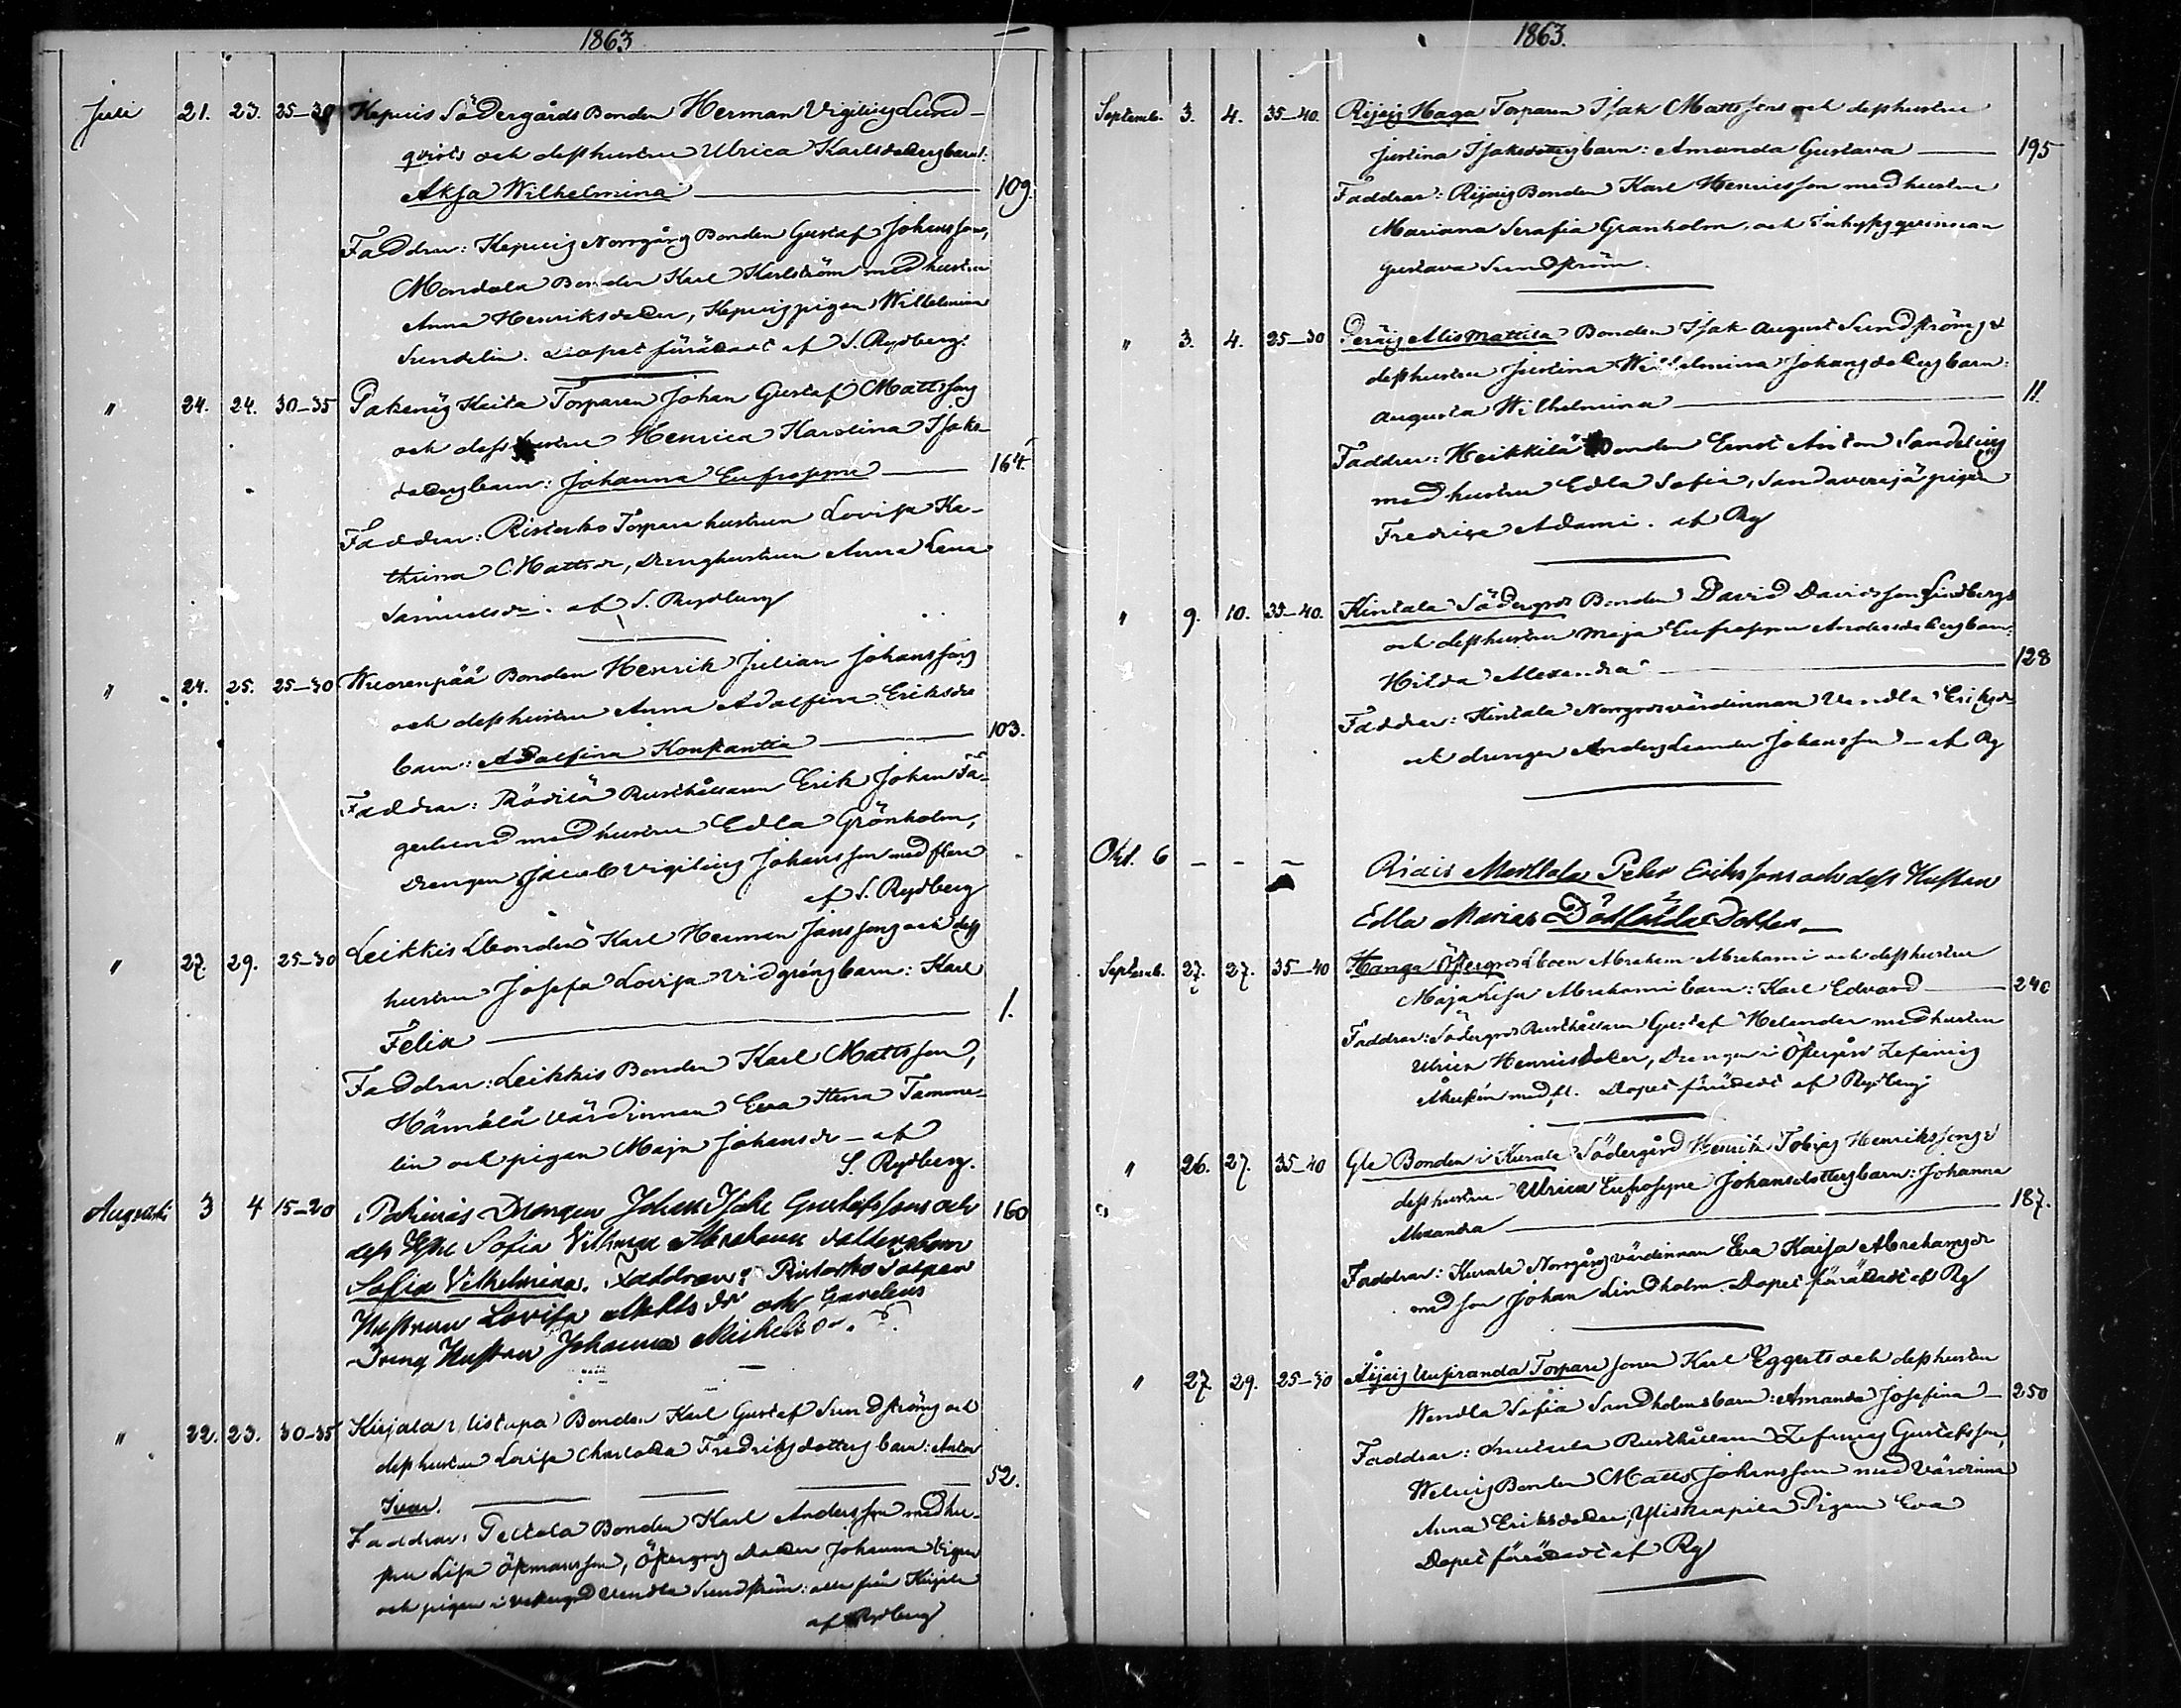 1863
Juli 21. 23. 25–30 Södergårds Bonden Herman Vigilius Lund-
qvists och dess hustru Ulrica Karlsdotters barn:
Aksa Wilhelmina 109.
Faddrar: Norrgårds Bonden Gustaf Johansson,
Bonden Karl Karlström med hustru
Anna Henriksdotter, pigan Wilhelmina
Sundelin. Dopet förrättadt af S. Rydberg.
" 24. 24. 30–35 Torparen Johan Gustaf Mattssons
och dess hustru Henrica Karolina Isaks-
dotters barn: Johanna Eufrosyne 164.
Faddrar: Ristarko Torpare hustrun Lovisa Ka-
thrina Mattsdr, Drenghustrun Anna Lena
Samuelsdr. af S. Rydberg
" 24. 25. 25–30 Wuorenpää Bonden Henrik Julian Johanssons
och dess hustru Anna Adolfina Eriksdrs
barn: Adolfina Konstantia 103.
Faddrar: Rusthållaren Erik Johan Fa-
gerlund med hustru Edla Grönholm,
Drengen Jacob Vigilius Johansson med flere
af S. Rydberg
" 27. 29. 25–30 Leikkis Bonden Karl Herman Janssons och dess
hustru Josefa Lovisa Vidgréns barn: Karl
Felix 1.
Faddrar: Leikkis Bonden Karl Mattsson,
Hämälä värdinnan Eva Stina Tamme-
lin och pigan Maja Johansdr – af
S. Rydberg.
Augusti 3 4 15–20 Pakinais Drengen Johan Isak Gustafssons och
dess Hustru Sofia Vilhelmina Abrahams dotters barn 160
Sofia Vilhelmina. Faddrar: Ristarko Torpar
Hustrun Lovisa Matts dr och
Dreng Hustrun Johanna Michels dr.
" 22. 23. 30–35 Kirjala Ylistupa Bonden Karl Gustaf Sundströms och
dess hustru Lovisa Charlotta Fredriksdotters barn: Anton
Ivar. 52.
Faddrar: Peltola Bonden Karl Andersson med hu-
stru Lisa Östmansson, Östergårds Johanna
och pigan i Vestergård Vendla Sundström: alla från Kirjala
af Rydberg
1863.
Septemb. 3. 4. 35–40. Haga Torparen Isak Mattssons och dess hustru
Justina Isaksdotters barn: Amanda Gustava 195
Faddrar: Bonden Karl Henricsson med hustru
Mariana Serafia Granholm, och Inhysesqvinnan
Gustava Sundström.
" 3. 4. 25–30 Alis Mattila Bonden Isak August Sundströms &
dess hustru Justina Wilhelmina Johansdotters barn:
Augusta Wilhelmina 11.
Faddrar: Heikkilä Bonden Ernst Anton Sandelius
med hustru Edla Sofia, pigan
Fredrica Adami. af Rg
" 9. 10. 35–40. Kintala Södergrds Bonden David Davidsson Lindbergs
och dess hustru Maja Eufrosyne Andersdotters barn:
Hilda Alexandra 128
Faddrar: Kintala Norrgrds värdinnan Vendla Eriksdr
och drengen Anders Leander Johansson – af Rg
Okt. 6 – – – Peter Erikssons och dess Hustru
Edla Marias Dödfödda Dotter
Septemb. 27. 27. 35–40 Hanga Östergrds Abraham Abrahami och dess hustru
Maja Lisa Abrahami barn: Karl Edvard 240
Faddrar: Södergrds Rusthållaren Gustaf Helander med hustru
Ulrica Henricsdotter, Drengen i Östergård Zefanias
med fl. Dopet förrättadt af Rydberg
" 26. 27. 35–40 Gla Bonden i Kurala Södergård Henrik Tobias Henrikssons &
dess hustru Ulrica Eufrosyne Johansdotters barn: Johanna
Alexandra 187.
Faddrar: Kurala Norrgårds värdinnan Eva Kaisa Abrahamsdr
med son Johan Lindholm. Dopet förrättadt af Rg
" 27 29. 25–30 Torpare sonen Karl Eggerts och dess hustru
Wendla Sofia Sandholms barn: Amanda Josefina 250
Faddrar: Rusthållaren Zefanias Gustafsson,
Bonden Matts Johansson med värdinna
Anna Eriksdotter, Pigan Eva
Dopet förrättadt af Rg